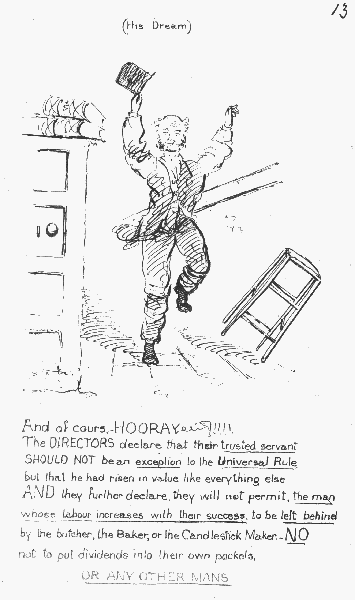 13
(the Dream)
And of cours, HOORAY !!!!
The DIRECTORS declare that their trusted servant
SHOULD NOT be an exception to the Universal Rule
but that he had risen in value like everything else
AND they further declare, they will not permit, the man
whose labour increases with their success, to be left behind
by the butcher, the Baker, or the Candlestick Maker - NO
not to put dividends into their own pockets,
OR ANY OTHER MANS